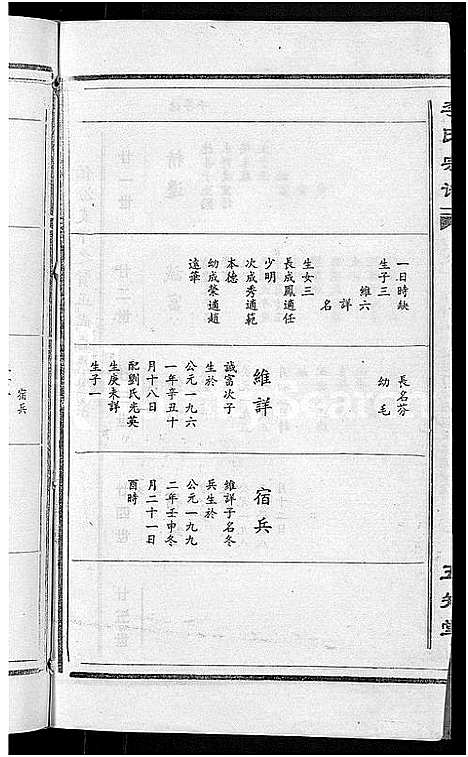 李氏宗譜
五知堂
一日時缺
生子三
維六
詳
名
生女三
長成鳳適任
少明
次成秀適范
本德
幼成榮適趙
遠華
長名芬
幼毛
維詳
誠富次子
生於
公元一九六
一年辛丑十
月十八日
配劉氏光英
生庚未詳
生子一
宿兵
維詳子名冬
兵生於
公元一九九
二年壬申冬
月二十一日
酉時
宿兵